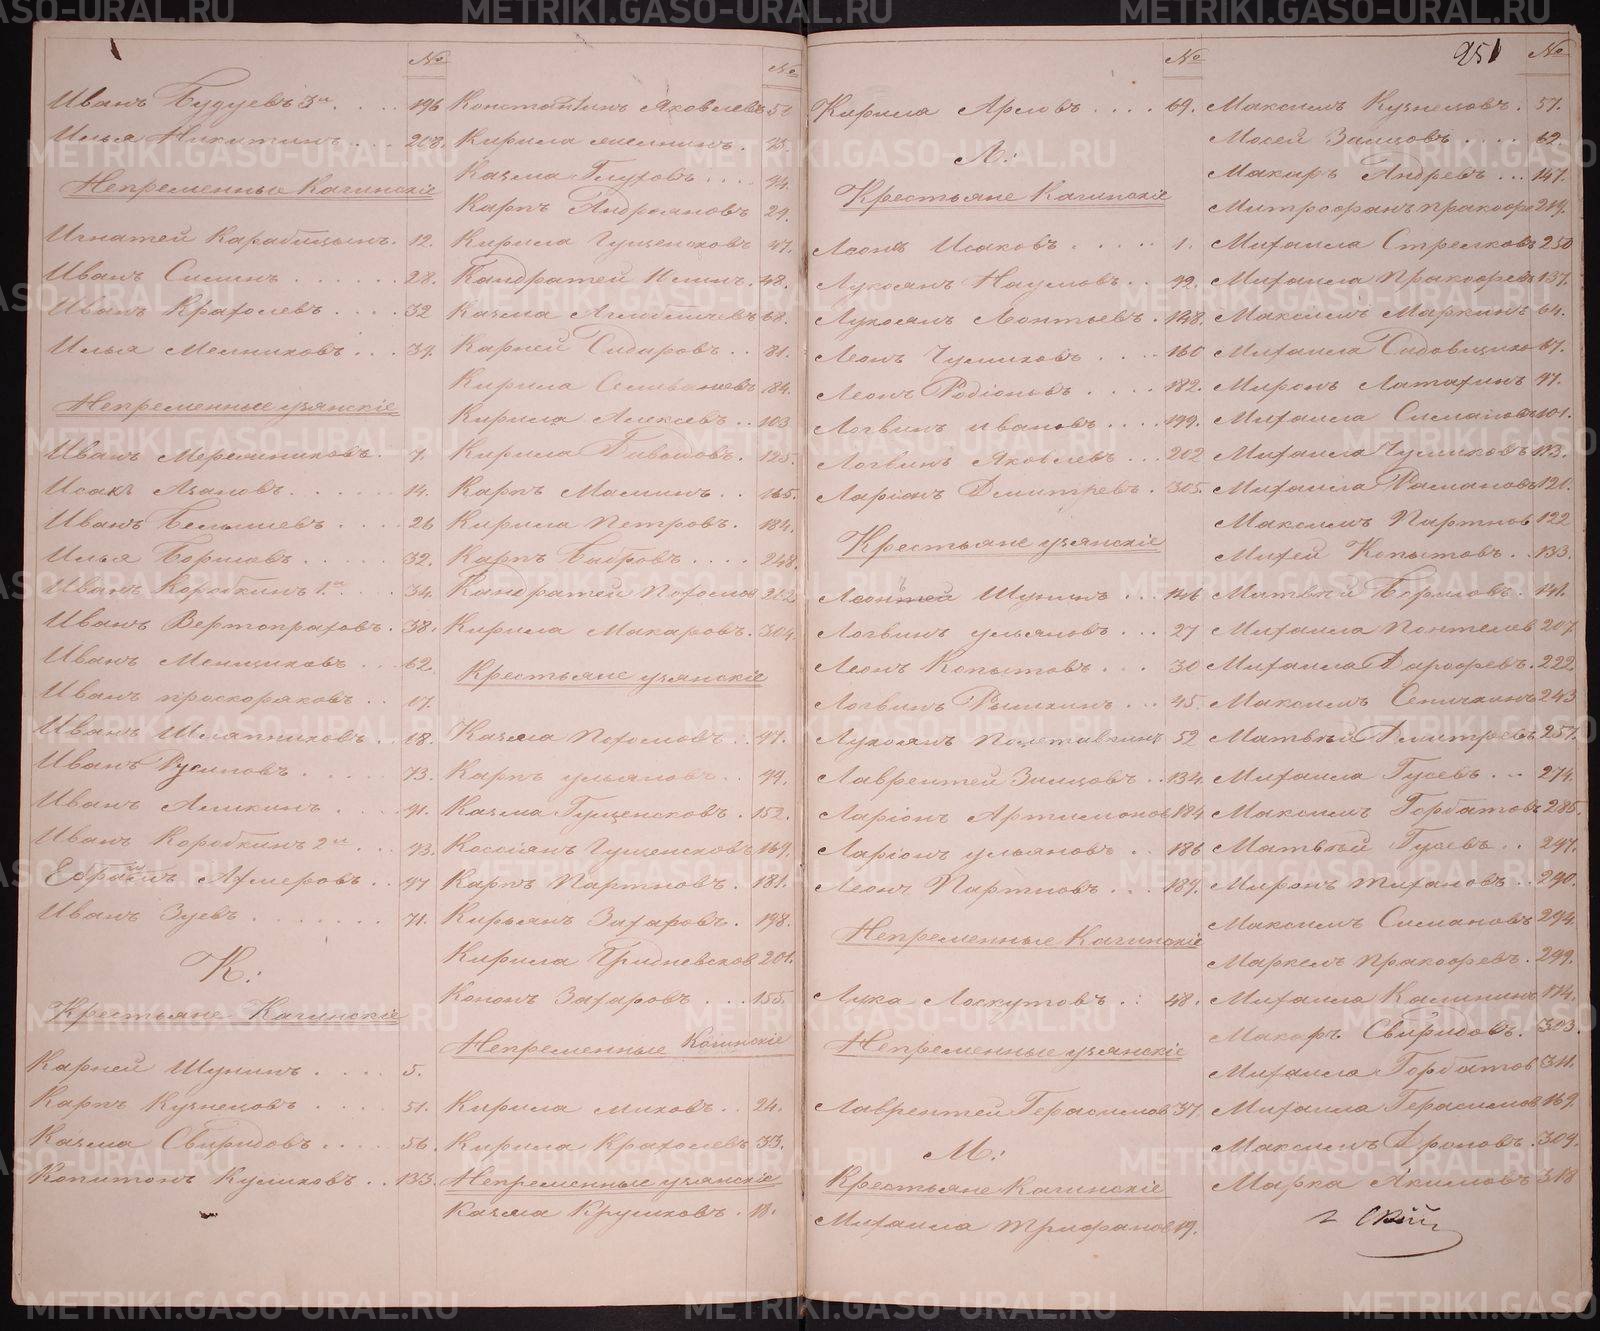 №
Иванъ Будуевъ 3й. 196
Илья Никитинъ 208.
Непременные Кагинскіе
Игнатей Карабицынъ. 12.
Иванъ Силинъ 28.
Иванъ Крахолевъ 32
Илья Мельниковъ 39.
Непременные узянскіе
Иванъ Мерешниковъ. 7.
Исакъ Азановъ 14.
Иванъ Белышевъ 26
Илья Борисовъ 32.
Иванъ Коробкинъ 1й 34.
Иванъ Вертопраховъ. 38.
Иванъ Менщиковъ 62.
Иванъ проскоряковъ 17.
Иванъ Шляпниковъ 18.
Иванъ Русиновъ 73.
Иванъ Аликинъ 91.
Иванъ Коробкинъ 2й 93.
Ефраимъ Ахмеровъ 97
Иванъ Зуевъ 71.
К.:
Крестьяне Кагинскіе
Карней Шунинъ 5.
Карпъ Кузнецовъ 51.
Казма Свиридовъ 56.
Копитонъ Куликовъ 133.
№
Константинъ Яковлевъ 5
Кирила мелнинъ. 75.
Казма Глуховъ 94.
Карпъ Андрияновъ 29.
Кирила Гущенсковъ 47.
Кандратей Илинъ. 48.
Казма 68.
Карней Сидаровъ 81.
Кирила Селивановъ 184.
Кирила Алексевъ 103
Кирила 125.
Карпъ Малинъ 165.
Кирила Петровъ. 184.
Карпъ Бобровъ 248.
Кандратей Пахомов 262
Кирила Макаровъ. 304.
Крестьяне узянскіе
Казма Пахомовъ 47.
Карпъ ульяновъ 94.
Казма Гущенсковъ. 152.
Кассиянъ Гущенсковъ 169.
Карпъ Партновъ. 181.
Кирьянъ Захаровъ. 198.
Кирила Гридневсков 201.
Кононъ Захаровъ 155.
Непременные Кагинскіе
Кирила миховъ 24.
Кирила Крахолевъ 33.
Непременные узянскіе
Казма Круликовъ. 18.
№
Кирила Арловъ 69.
Л.:
Крестьяне Кагинскіе
Леонъ Исаковъ 1.
Лукоянъ Наумовъ 92.
Лукоянъ Леонтьевъ. 148.
Леонъ Чуликовъ 160
Леонъ Родіоновъ 182.
Логвинъ ивановъ 199.
Логвинъ Яковлевъ 202
Ларіонъ Дмитревъ. 305.
Крестьяне узянскіе
Леонтей Шунинъ 146
Логвинъ ульяновъ 27
Леонъ Копытовъ 30
Логвинъ Рышкинъ 45.
Лукоянъ Полетавкинъ 52
Лаврентей Зимцовъ 134.
Ларіонъ Артимонов 184
Ларіонъ ульяновъ 186
Леонъ Партновъ 189.
Непременные Кагинскіе
Лука Лоскутовъ 48.
Непременные узянскіе
Лаврентей Герасимов 37.
М.:
Крестьяне Кагинскіе
Михаила трифанов 19.
951 №
Максимъ Кузнецовъ. 57.
Мосей Заицовъ 62.
Макаръ Андревъ 147.
Митрофанъ пракофе 219.
Михаила Стрелковъ 250
Михаила пракофевъ 137.
Максимъ Маркинъ 64.
Михаила Садовщиков 67.
Миронъ Латахинъ 97.
Михаила Симановъ 101.
Михаила Чуликовъ 113.
Михаила Рамановъ 121.
Максимъ Партнов 122
Михей Копытовъ 133.
Матвѣй Борисовъ. 141.
Михаила Понтелев 207.
Михаила Дарофевъ. 222.
Максимъ Сепичкинъ 243
Матвѣй Дмитревъ 257.
Михаила Гусевъ 274.
Максимъ Горбатовъ 285.
Матвѣй Гусевъ 247.
Миронъ тихановъ 290.
Максимъ Симановъ 294.
Маркелъ пракофевъ. 299.
Михаила Калининъ 114.
Макаръ Свиридовъ. 303.
Михаила Горбатов 311.
Михаила Герасимов 169.
Максимъ Дроновъ. 309.
Марка Акимовъ 318
METRIKI.GASO-URAL.RU